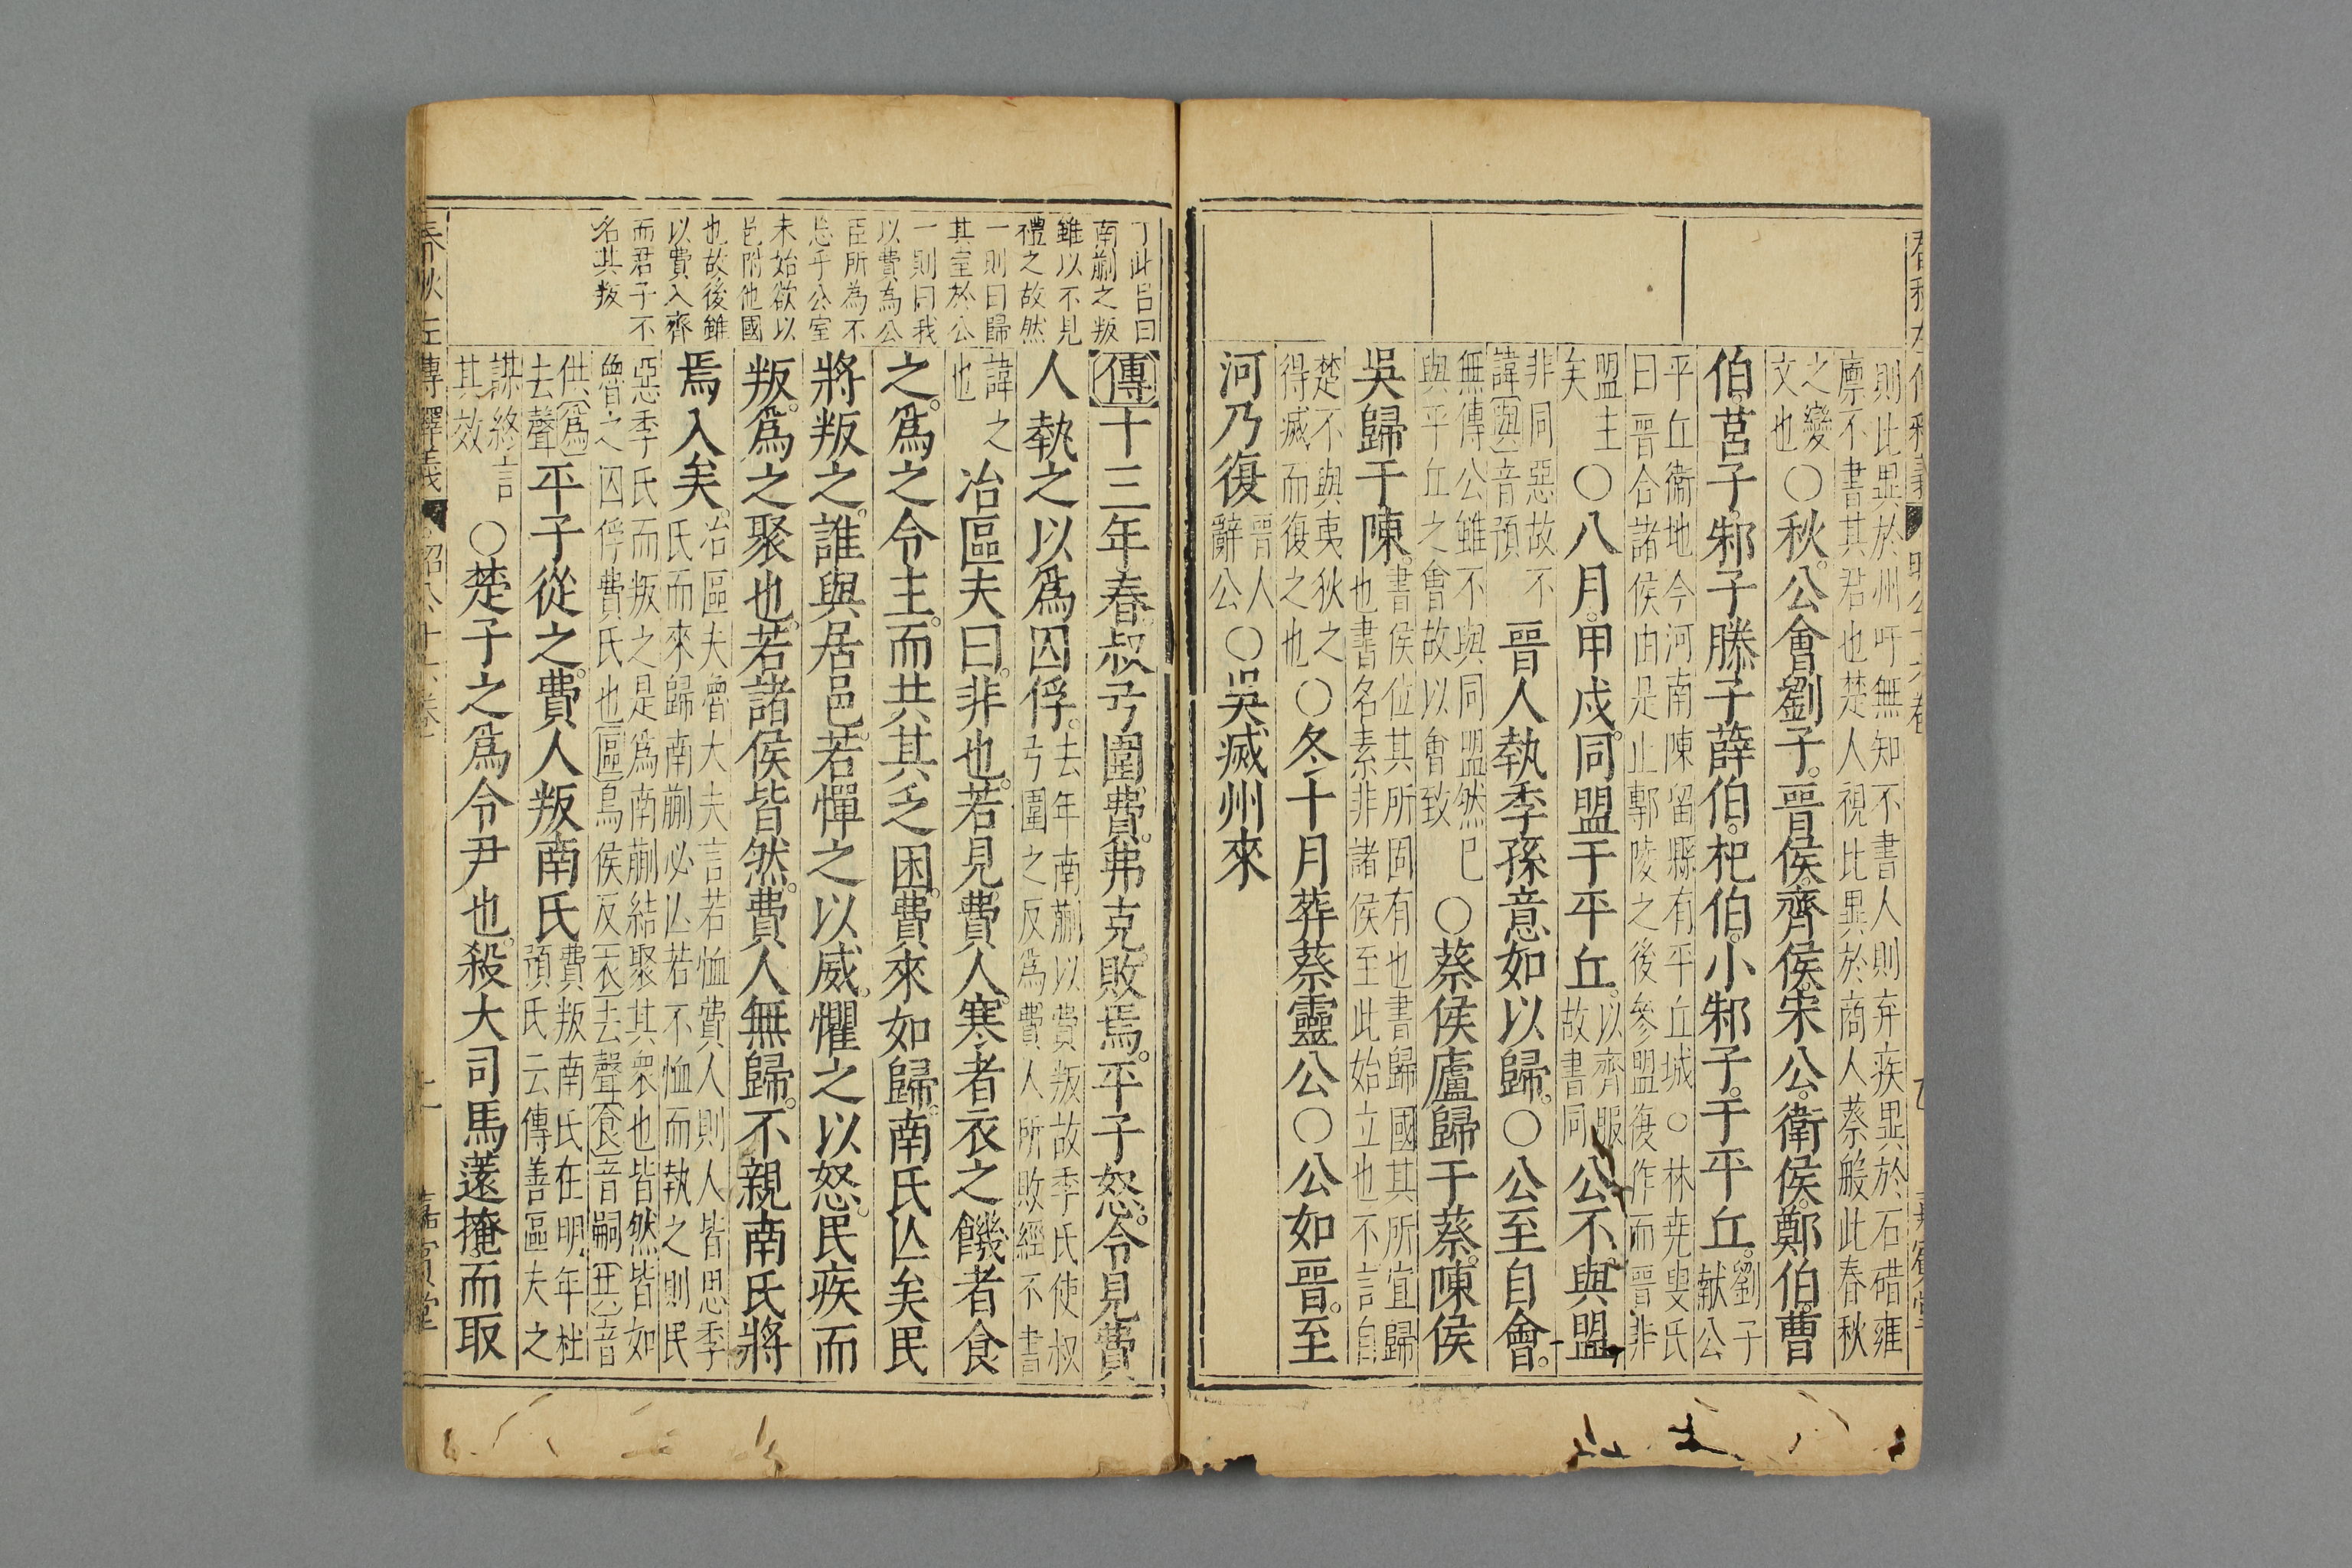 則比異於州吁無知不書人則弃疾異於石碏雍
廪不書其君也楚人視比異於商人蔡般此春秋
之變
文也
○秋公會劉子晉侯齊侯宋公衛侯鄭伯曹
伯莒子邾子滕子薛伯杞伯小邾子于平丘
劉子
献公
平丘衞地今河南陳留縣有平丘城○林尭叟氏
曰晉合諸侯由是止鄟陵之後參盟復作而晉非
盟主
矣
○八月甲戌同盟于平丘
以齊服
故書同
公不與盟
非同惡故不
諱與音預
晉人執季孫意如以歸○公至自會
無傳公雖不與同盟然已
與平丘之會故以會致
○蔡侯廬歸于蔡陳侯
吳歸于陳
書侯位其所固有也書歸國其所宜歸
也書名素非諸侯至此始立也不言自
楚不與夷狄之
得滅而復之也
○冬十月葬蔡靈公○公如晉至
河乃復
晉人
辭公
○吳滅州來
丁此呂曰
南蒯之叛
雖以不見
禮之故然
一則曰歸
其室於公
一則曰我
以費為公
臣所為不
忘乎公室
未始欲以
邑附他國
也故後雖
以費入齊
而君子不
名其叛
傳十三年春叔弓圍費弗克敗焉平子怒令見費
人執之以爲囚俘
去年南蒯以費叛故季氏使叔
弓圍之反爲費人所敗經不書
諱之
也
冶區夫曰非也若見費人寒者衣之饑者食
之爲之令主而共其乏困費來如歸南氏亾矣民
將叛之誰與居邑若憚之以威懼之以怒民疾而
叛爲之聚也若諸侯皆然費人無歸不親南氏將
焉入矣
冶區夫魯大夫言若恤費人則人皆思季
氏而來歸南蒯必亾若不恤而執之則民
惡季氏而叛之是爲南蒯結聚其衆也皆然皆如
魯之囚俘費氏也區烏侯反衣去聲食音嗣共音
供爲
去聲
平子從之費人叛南氏
費叛南氏在明年杜
預氏云傳善區夫之
謀終言
其效
○楚子之爲令尹也殺大司馬薳掩而取
春秋左傳釋義
嘉賓堂